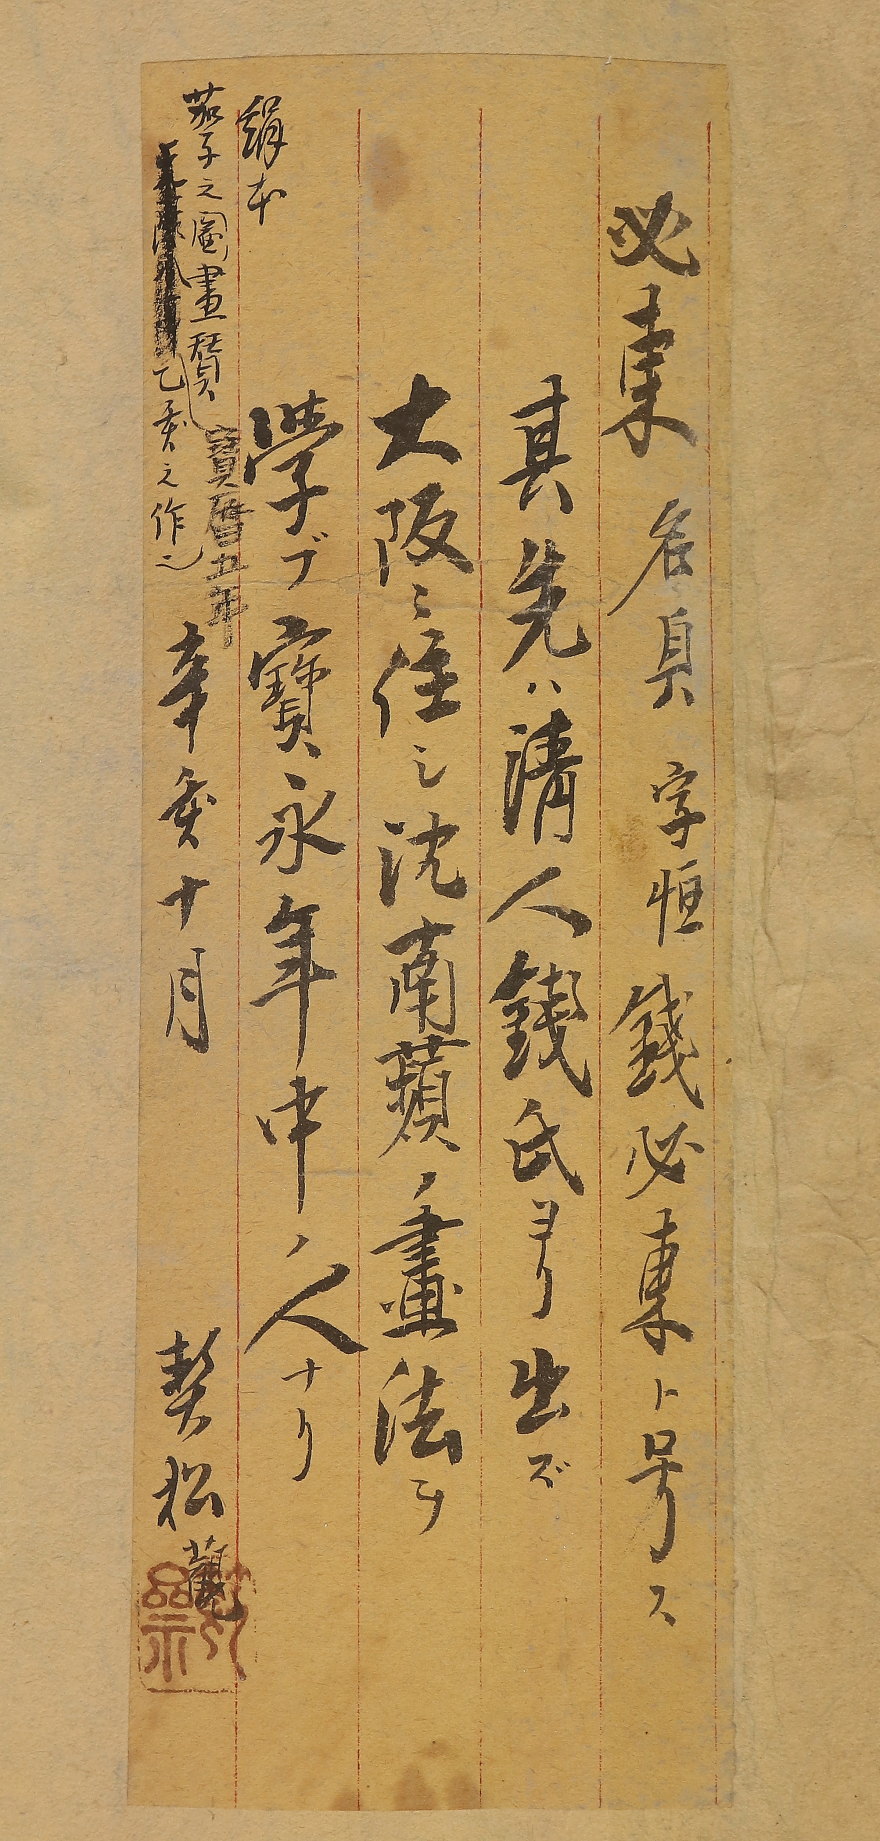 必東 名貞 字恒 錢必東ト号ス
其先ハ清人錢氏ヨリ出ズ
大阪ニ住シ沈南蘋ノ畫法ヲ
學ブ寶永年中ノ人ナリ
絹本
茄子之圖畫賛
寶暦五年
乙亥之作
辛亥十月 契松觀